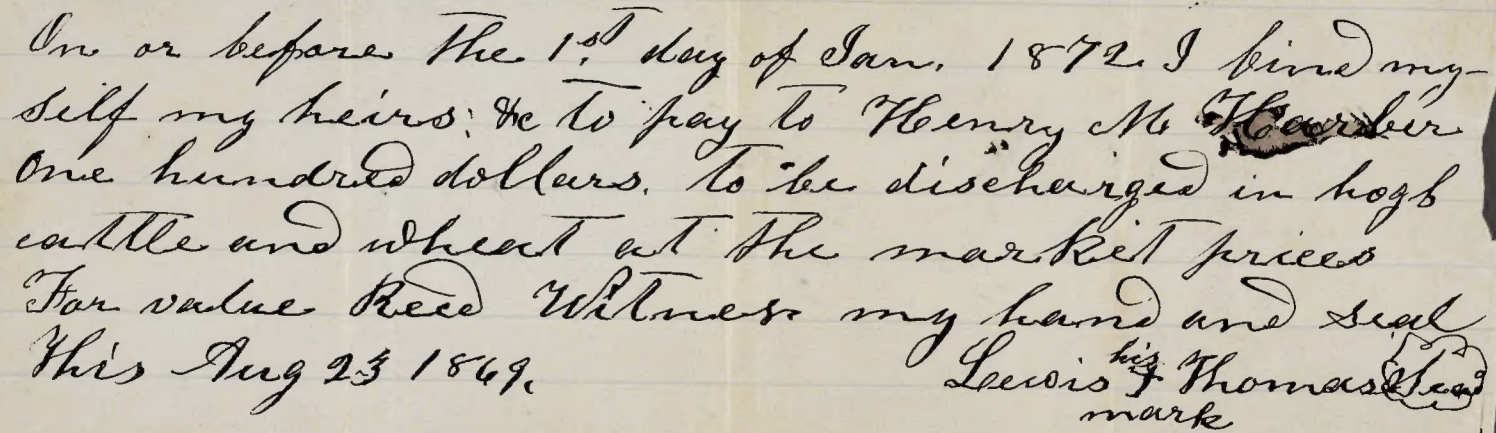 On or before the 1st day of Jan. 1872 I bind my-
self my heirs, &c to pay to Henry M Harber
One hundred dollars. to be discharged in hogs
cattle and wheat at the market prices
For value Recd Witness my hand and seal
This Aug 23 1869.
Lewis his X Thomas Seal
mark